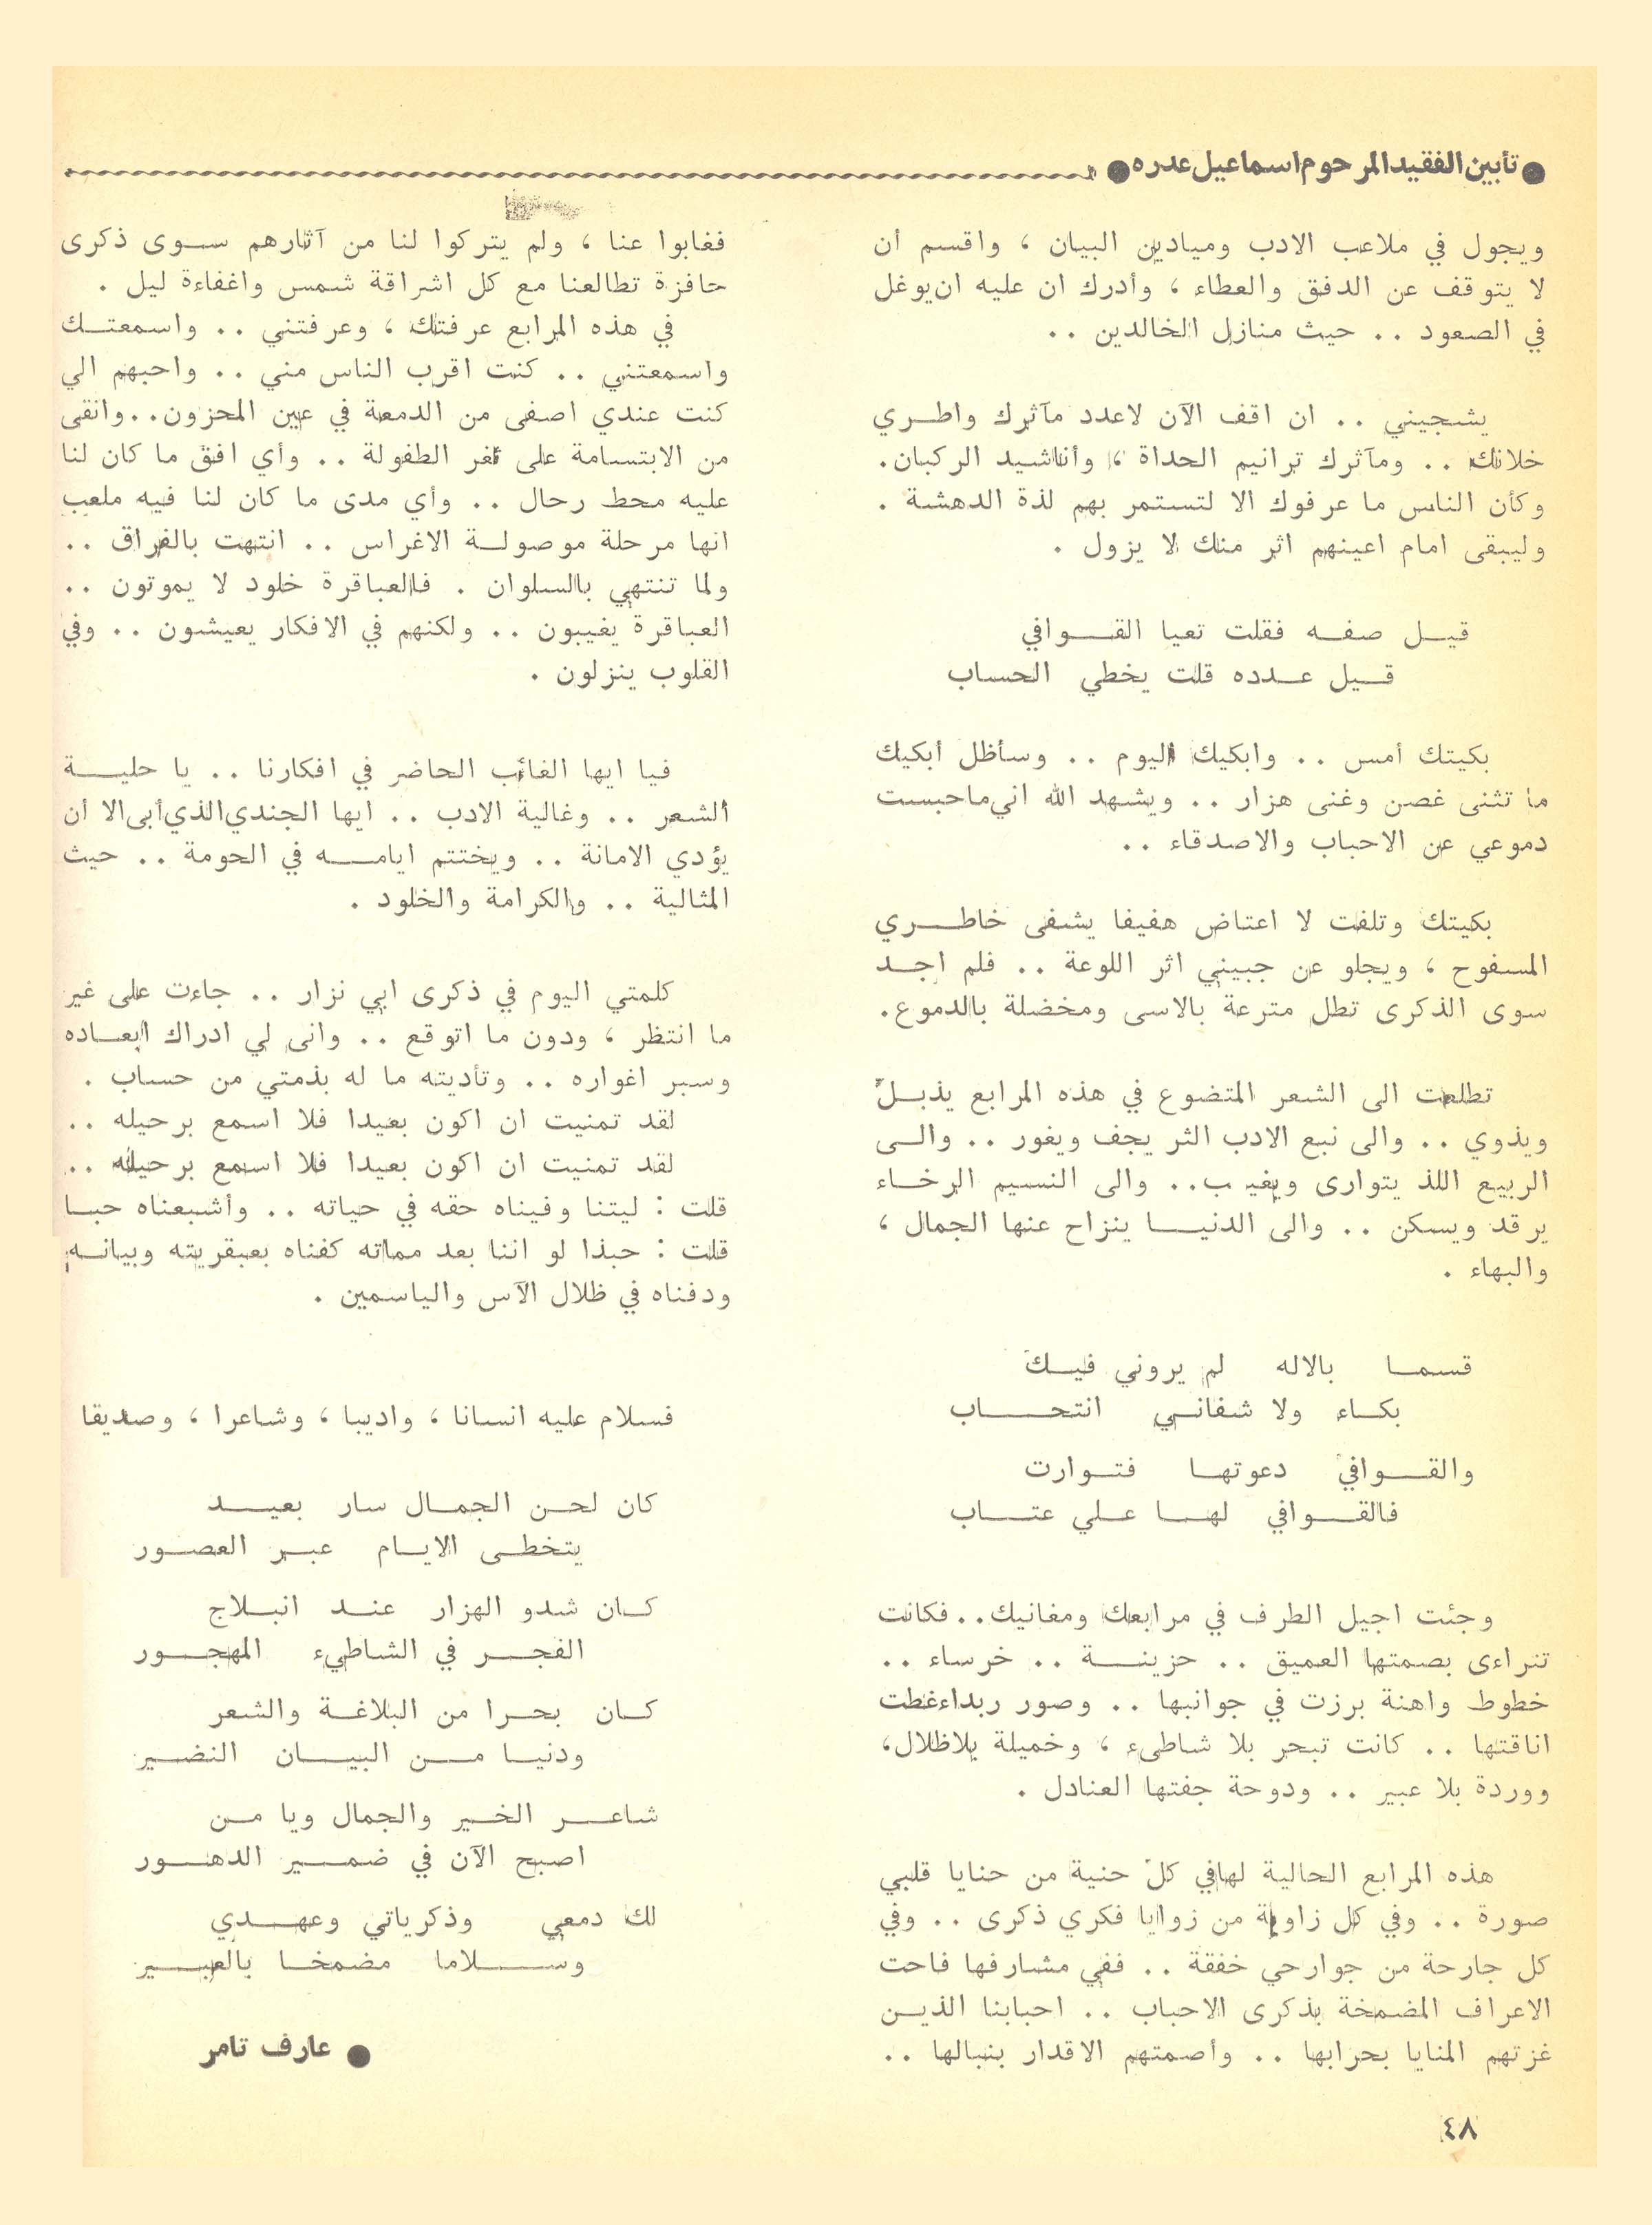 ● تأبين الفقيد المرحوم اسماعيل عدره ●
ويجول في ملاعب الادب وميادين البيان ، واقسم أن
لا يتوقف عن الدفق والعطاء ، وأدرك ان عليه ان يوغل
في الصعود .. حيث منازل الخالدين ..
يشجيني .. ان اقف الآن لاعدد مآثرك واطري
خلانك .. ومآثرك ترانيم الحداة ، وأناشيد الركبان.
وكأن الناس ما عرفوك الا لتستمر بهم لذة الدهشة .
وليبقى امام اعينهم اثر منك لا يزول .
قيل صفه فقلت تعيا القوافي
قيل عدده قلت يخطي الحساب
بكيتك أمس .. وابكيك اليوم .. وسأظل أبكيك
ما تثنى غصن وغنى هزار .. ويشهد الله اني ما حبست
دموعي عن الاحباب والاصدقاء ..
بكيتك وتلفت لا اعتاض هفيفا يشفى خاطري
المسفوح ، ويجلو عن جبيني اثر اللوعة .. فلم اجد
سوى الذكرى تطل مترعة بالاسى ومخضلة بالدموع.
تطلعت الى الشعر المتضوع في هذه المرابع يذبل
ويذوي .. والى نبع الادب الثر يجف ويغور .. والى
الربيع اللذ يتوارى ويغيب.. والى النسيم الرخاء
يرقد ويسكن .. والى الدنيا ينزاح عنها الجمال ،
والبهاء .
قسما بالاله لم يروني فيك
بكاء ولا شفاني انتحاب
والقوافي دعوتها فتوارت
فالقوافي لها علي عتاب
وجئت اجيل الطرف في مرابعك ومغانيك.. فكانت
تتراءى بصمتها العميق .. حزينة .. خرساء ..
خطوط واهنة برزت في جوانبها .. وصور ربداء غطت
اناقتها .. كانت تبحر بلا شاطىء ، وخميلة بلا ظلال،
ووردة بلا عبير .. ودوحة جفتها العنادل .
هذه المرابع الحالية لها في كل حنية من حنايا قلبي
صورة .. وفي كل زاوية من زوايا فكري ذكرى .. وفي
كل جارحة من جوارحي خفقة .. ففي مشارفها فاحت
الاعراف المضمخة بذكرى الاحباب .. احبابنا الذين
غزتهم المنايا بحرابها .. وأصمتهم الاقدار بنبالها ..
فغابوا عنا ، ولم يتركوا لنا من آثارهم سوى ذكرى
حافزة تطالعنا مع كل اشراقة شمس واغفاءة ليل .
في هذه المرابع عرفتك ، وعرفتني .. واسمعتك
واسمعتني .. كنت اقرب الناس مني .. واحبهم الي
كنت عندي اصفى من الدمعة في عين المحزون.. وانقى
من الابتسامة على ثغر الطفولة .. وأي افق ما كان لنا
عليه محط رحال .. وأي مدى ما كان لنا فيه ملعب
انها مرحلة موصولة الاغراس .. انتهت بالفراق ..
ولما تنتهي بالسلوان . فالعباقرة خلود لا يموتون ..
العباقرة يغيبون .. ولكنهم في الافكار يعيشون .. وفي
القلوب ينزلون .
فيا ايها الغائب الحاضر في افكارنا .. يا حلية
الشعر .. وغالية الادب .. ايها الجندي الذي أبى الا أن
يؤدي الامانة .. ويختتم ايامه في الحومة .. حيث
المثالية .. والكرامة والخلود .
كلمتي اليوم في ذكرى ابي نزار .. جاءت على غير
ما انتظر ، ودون ما اتوقع .. وانى لي ادراك ابعاده
وسبر اغواره .. وتأديته ما له بذمتي من حساب .
لقد تمنيت ان اكون بعيدا فلا اسمع برحيله ..
لقد تمنيت ان اكون بعيدا فلا اسمع برحيله ..
قلت : ليتنا وفيناه حقه في حياته .. وأشبعناه حبا
قلت : حبذا لو اننا بعد مماته كفناه بعبقريته وبيانه
ودفناه في ظلال الآس والياسمين .
فسلام عليه انسانا ، واديبا ، وشاعرا ، وصديقا
كان لحن الجمال سار بعيد
يتخطى الايام عبر العصور
كان شدو الهزار عند انبلاج
الفجر في الشاطيء المهجور
كان بحرا من البلاغة والشعر
ودنيا من البيان النضير
شاعر الخير والجمال ويا من
اصبح الآن في ضمير الدهور
لك دمعي وذكرياتي وعهدي
وسلاما مضمخا بالعبير
● عارف تامر
٤٨